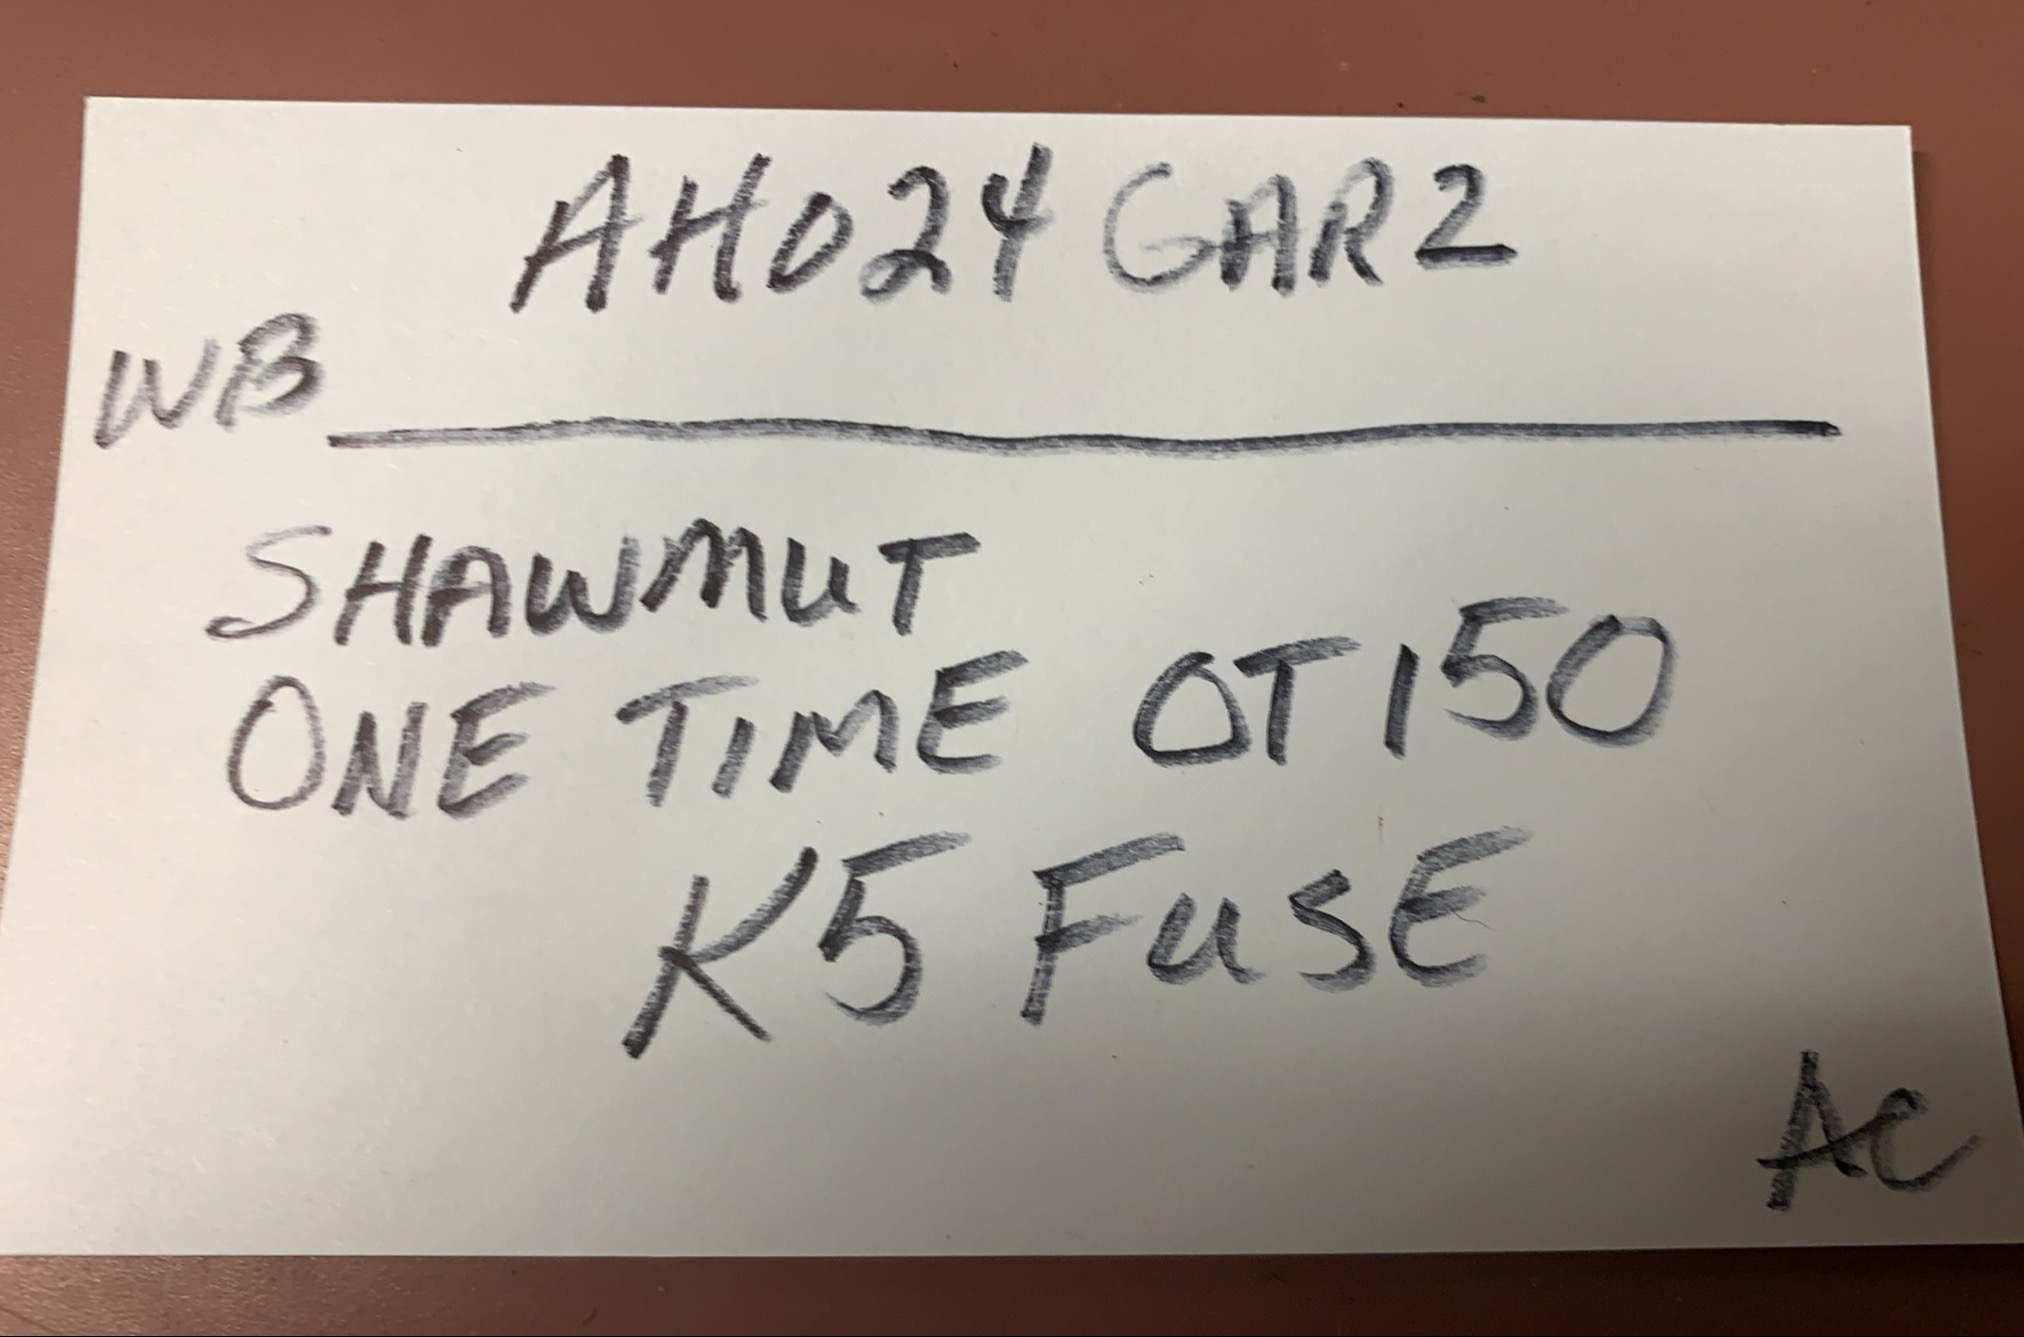 AH024GAR2
WB
SHAWMUT
ONE TIME OT150
K5 FUSE
AC